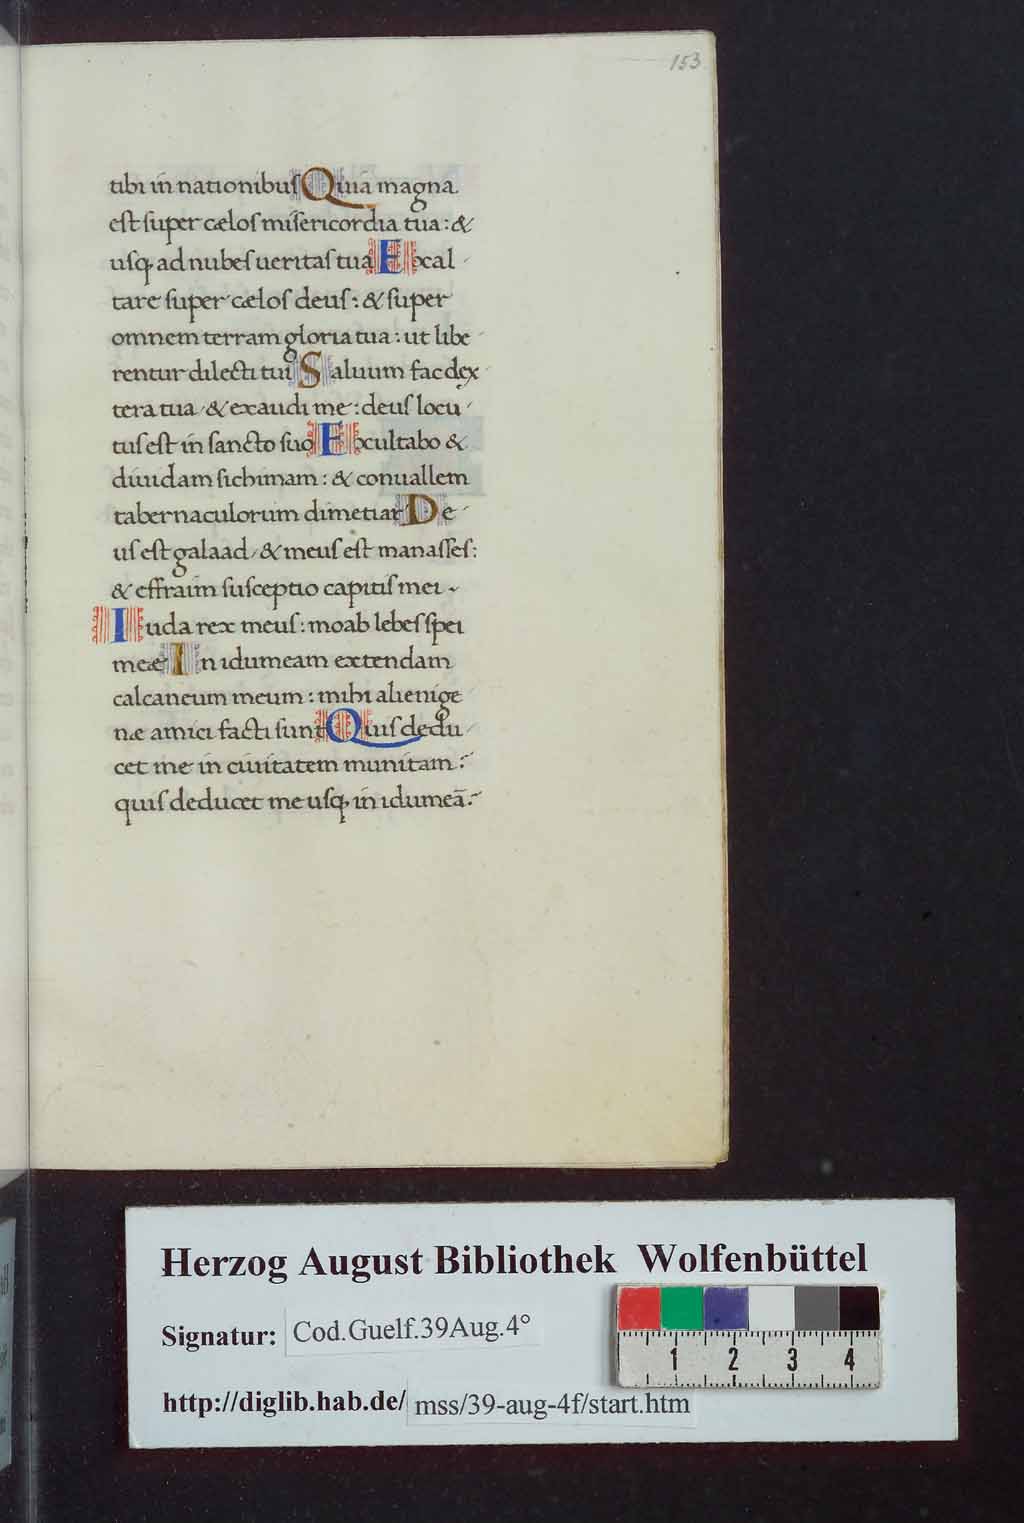 153
tibi in nationibus Quia magna
est super cælos misericordia tua: &
usq; ad nubes ueritas tua Excal
tare super cælos deus: & super
omnem terram gloria tua: ut libe
rentur dilecti tui Saluum fac dex
tera tua & exaudi me: deus locu
tus est in sancto suo Excultabo &
diuidam sichimam: & conuallem
tabernaculorum dimetiar De
us est galaad, & meus est manasses:
& effraim susceptio capitis mei
Iuda rex meus: moab lebes spei
meæ In idumeam extendam
calcaneum meum: mihi alienige
næ amici facti sunt Quis dedu
cet me in ciuitatem munitam:
quis deducet me usq; in idumeā:
Herzog August Bibliothek Wolfenbüttel
Signatur: Cod.Guelf.39Aug.4°
1 2 3 4
http://diglib.hab.de/ mss/39-aug-4f/start.htm